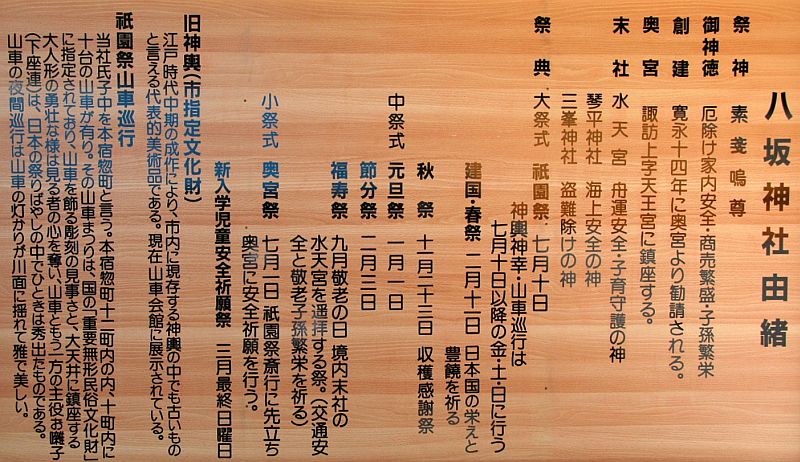 八坂神社由緒
祭神 素戔嗚尊
御神徳 厄除け家内安全・商売繁盛・子孫繁栄
創建 寛永十四年に奥宮より勧請される。
奥宮 諏訪上字天王宮に鎮座する。
末社 水天宮 舟運安全・子育守護の神
琴平神社 海上安全の神
三峯神社 盗難除けの神
祭典 大祭式 祇園祭 七月十日
神輿神幸・山車巡行は
七月十日以降の金・土・日に行う
建国・春祭 二月十一日 日本国の栄えと
豊饒を祈る
秋祭 十一月二十三日 収穫感謝祭
中祭式 元旦祭 一月一日
節分祭 二月三日
福寿祭 九月敬老の日 境内末社の
水天宮を遥拝する祭。(交通安
全と敬老子孫繁栄を祈る)
小祭式 奥宮祭 七月一日 祇園祭斎行に先立ち
奥宮に安全祈願を行う。
新入学児童安全祈願祭 三月最終日曜日
旧神輿(市指定文化財)
江戸時代中期の成作により、市内に現存する神輿の中でも古いもの
と言える代表的美術品である。現在山車会館に展示されている。
祇園祭山車巡行
当社氏子中を本宿惣町と言う。本宿惣町十二町内の内、十町内に
十台の山車が有り。その山車まつりは、国の「重要無形民俗文化財」
に指定されており、山車を飾る彫刻の見事さと、大天井に鎮座する
大人形の勇壮な様は見る者の心を奪い、山車ともう一方の主役お囃子
(下座連)は、日本の祭りばやしの中でひときは秀出たものである。
山車の夜間巡行は山車の灯かりが川面に揺れて雅で美しい。